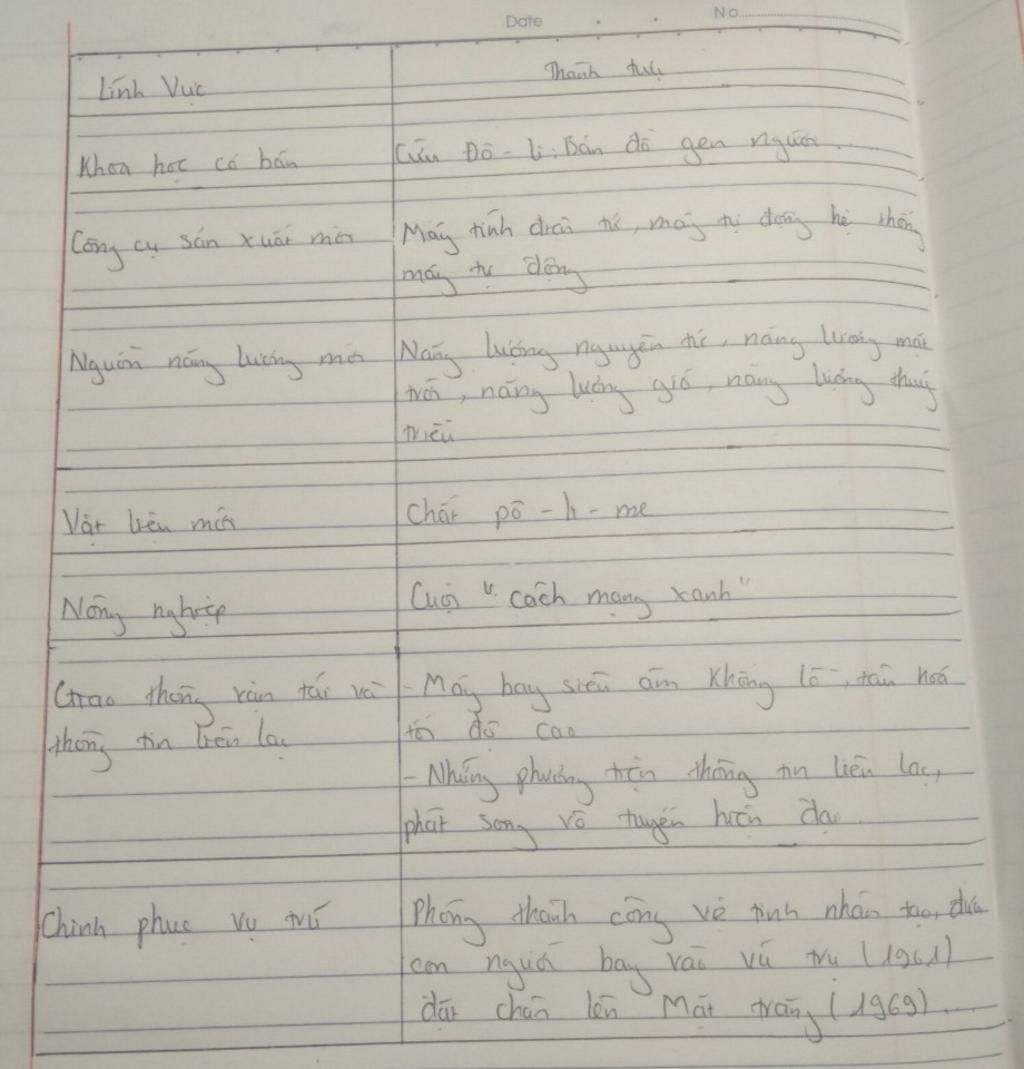 Date . . No
Lĩnh Vực Thành tựu
Khoa học cơ bản Cừu Đô-li; Bản đồ gen người
Công cụ sản xuất mới Máy tính điện tử, máy tự động hệ thống
máy tự động
Nguồn năng lượng mới Năng lượng nguyên tử, năng lượng mặt
trời, năng lượng gió, năng lượng thuỷ
triều
Vật liệu mới Chất pô-li-me
Nông nghiệp Cuộc "cách mạng xanh"
Giao thông vận tải và - Máy bay siêu âm khổng lồ, tàu hoả
thông tin liên lạc tốc độ cao
- Những phương tiện thông tin liên lạc,
phát sóng vô tuyến hiện đại
Chinh phục vụ trũ Phóng thành công vệ tinh nhân tạo, đưa
con người bay vào vũ trụ (1961)
đặt chân lên Mặt trăng (1969)